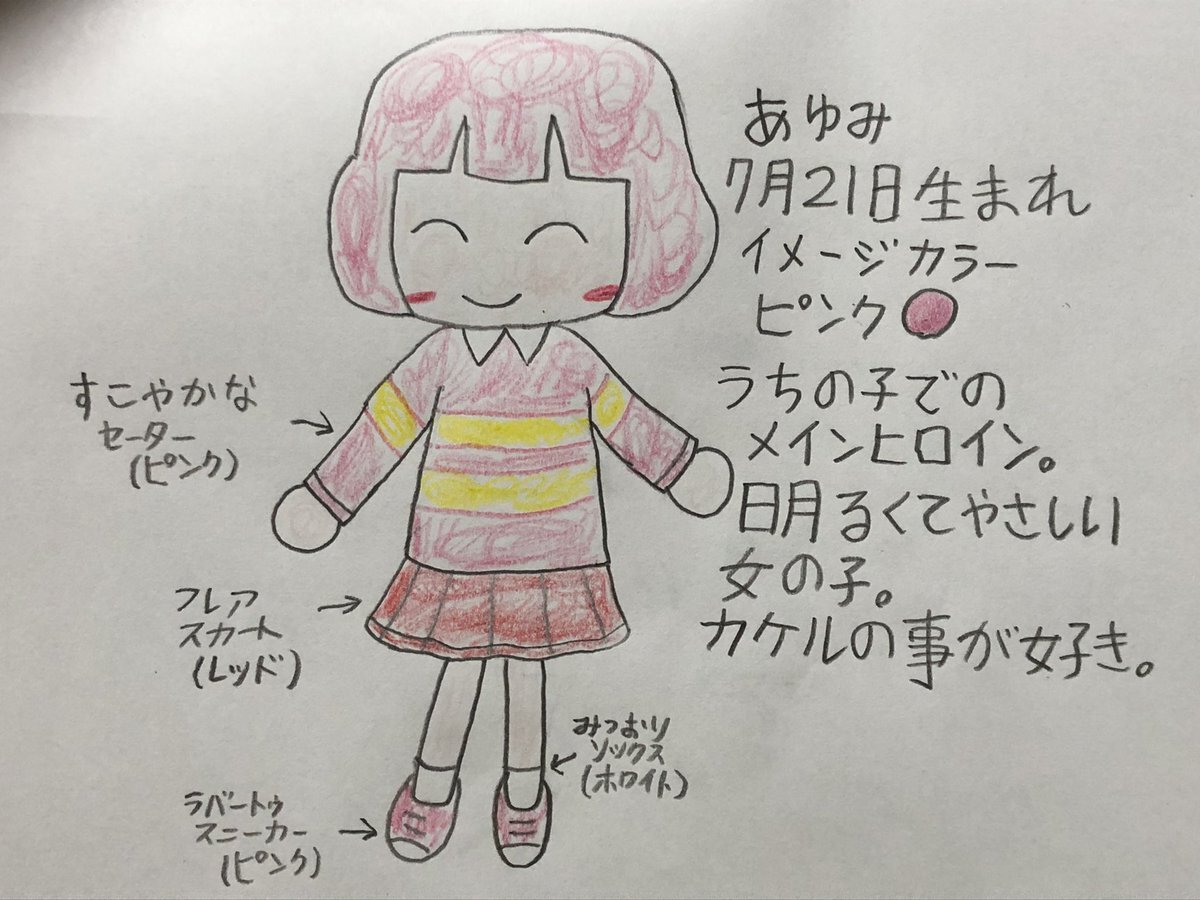 あゆみ
7月21日生まれ
イメージカラー
ピンク
うちの子での
メインヒロイン。
明るくてやさしい
女の子。
カケルの事が好き。
すこやかな
セーター
(ピンク)
フレア
スカート
(レッド)
みつおり
ソックス
(ホワイト)
ラバートゥ
スニーカー
(ピンク)